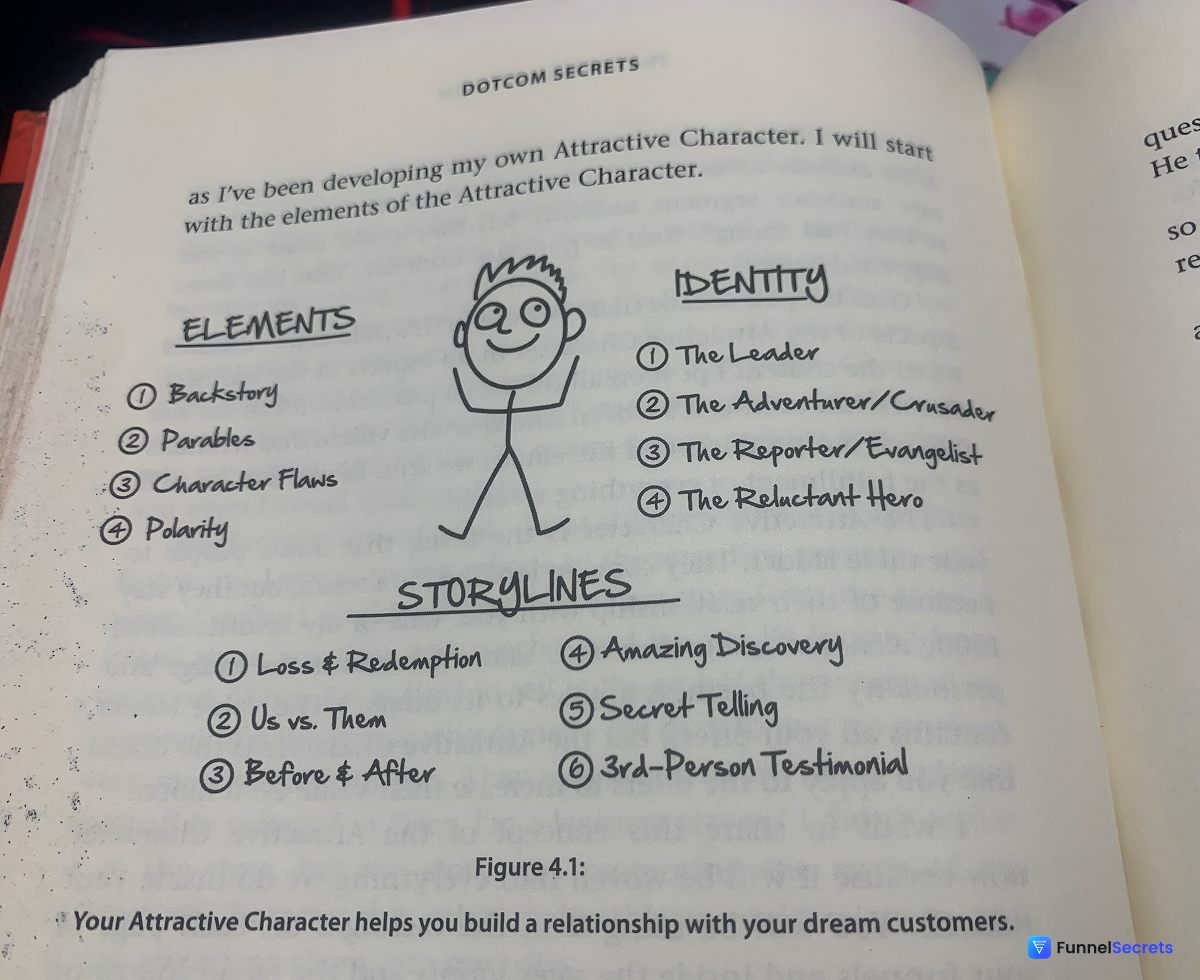 DOTCOM SECRETS
as I've been developing my own Attractive Character. I will start
with the elements of the Attractive Character.
ELEMENTS
① Backstory
② Parables
③ Character Flaws
④ Polarity
IDENTITY
① The Leader
② The Adventurer/Crusader
③ The Reporter/Evangelist
④ The Reluctant Hero
STORYLINES
① Loss & Redemption
② Us vs. Them
③ Before & After
④ Amazing Discovery
⑤ Secret Telling
⑥ 3rd-Person Testimonial
Figure 4.1:
Your Attractive Character helps you build a relationship with your dream customers.
He
so
re
FunnelSecrets